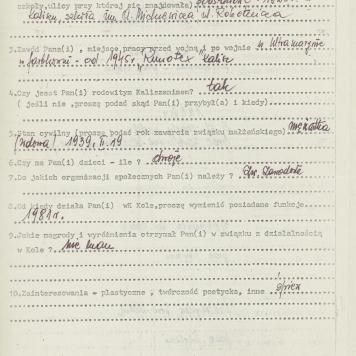 szkoły, ulicy przy której się znajdowała)
3. Zawód Pana(i) , miejsce pracy przed wojną i po wojnie
od 1945r. Runotex Kalisz
4. Czy jest Pan(i) rodowitym Kaliszaninem? tak
( jeśli nie ,proszę podać skąd Pan(i) przybył(a) i kiedy)
5. Stan cywilny (proszę podać rok zawarcia związku małżeńskiego) mężatka
(wdowa) 1939. II. 19
6. Czy ma Pan(i) dzieci - ile ? dwoje
7. Do jakich organizacji społecznych Pan(i) należy ?
8. Od kiedy działa Pan(i) wK Kole,proszę wymienić posiadane funkcje.
1981r.
9. Jakie nagrody i wyróżnienia otrzymał Pan(i) w związku z działalnością
w Kole ? nie mam
10. Zainteresowania - plastyczne , twórczość poetycka, inne śpiew